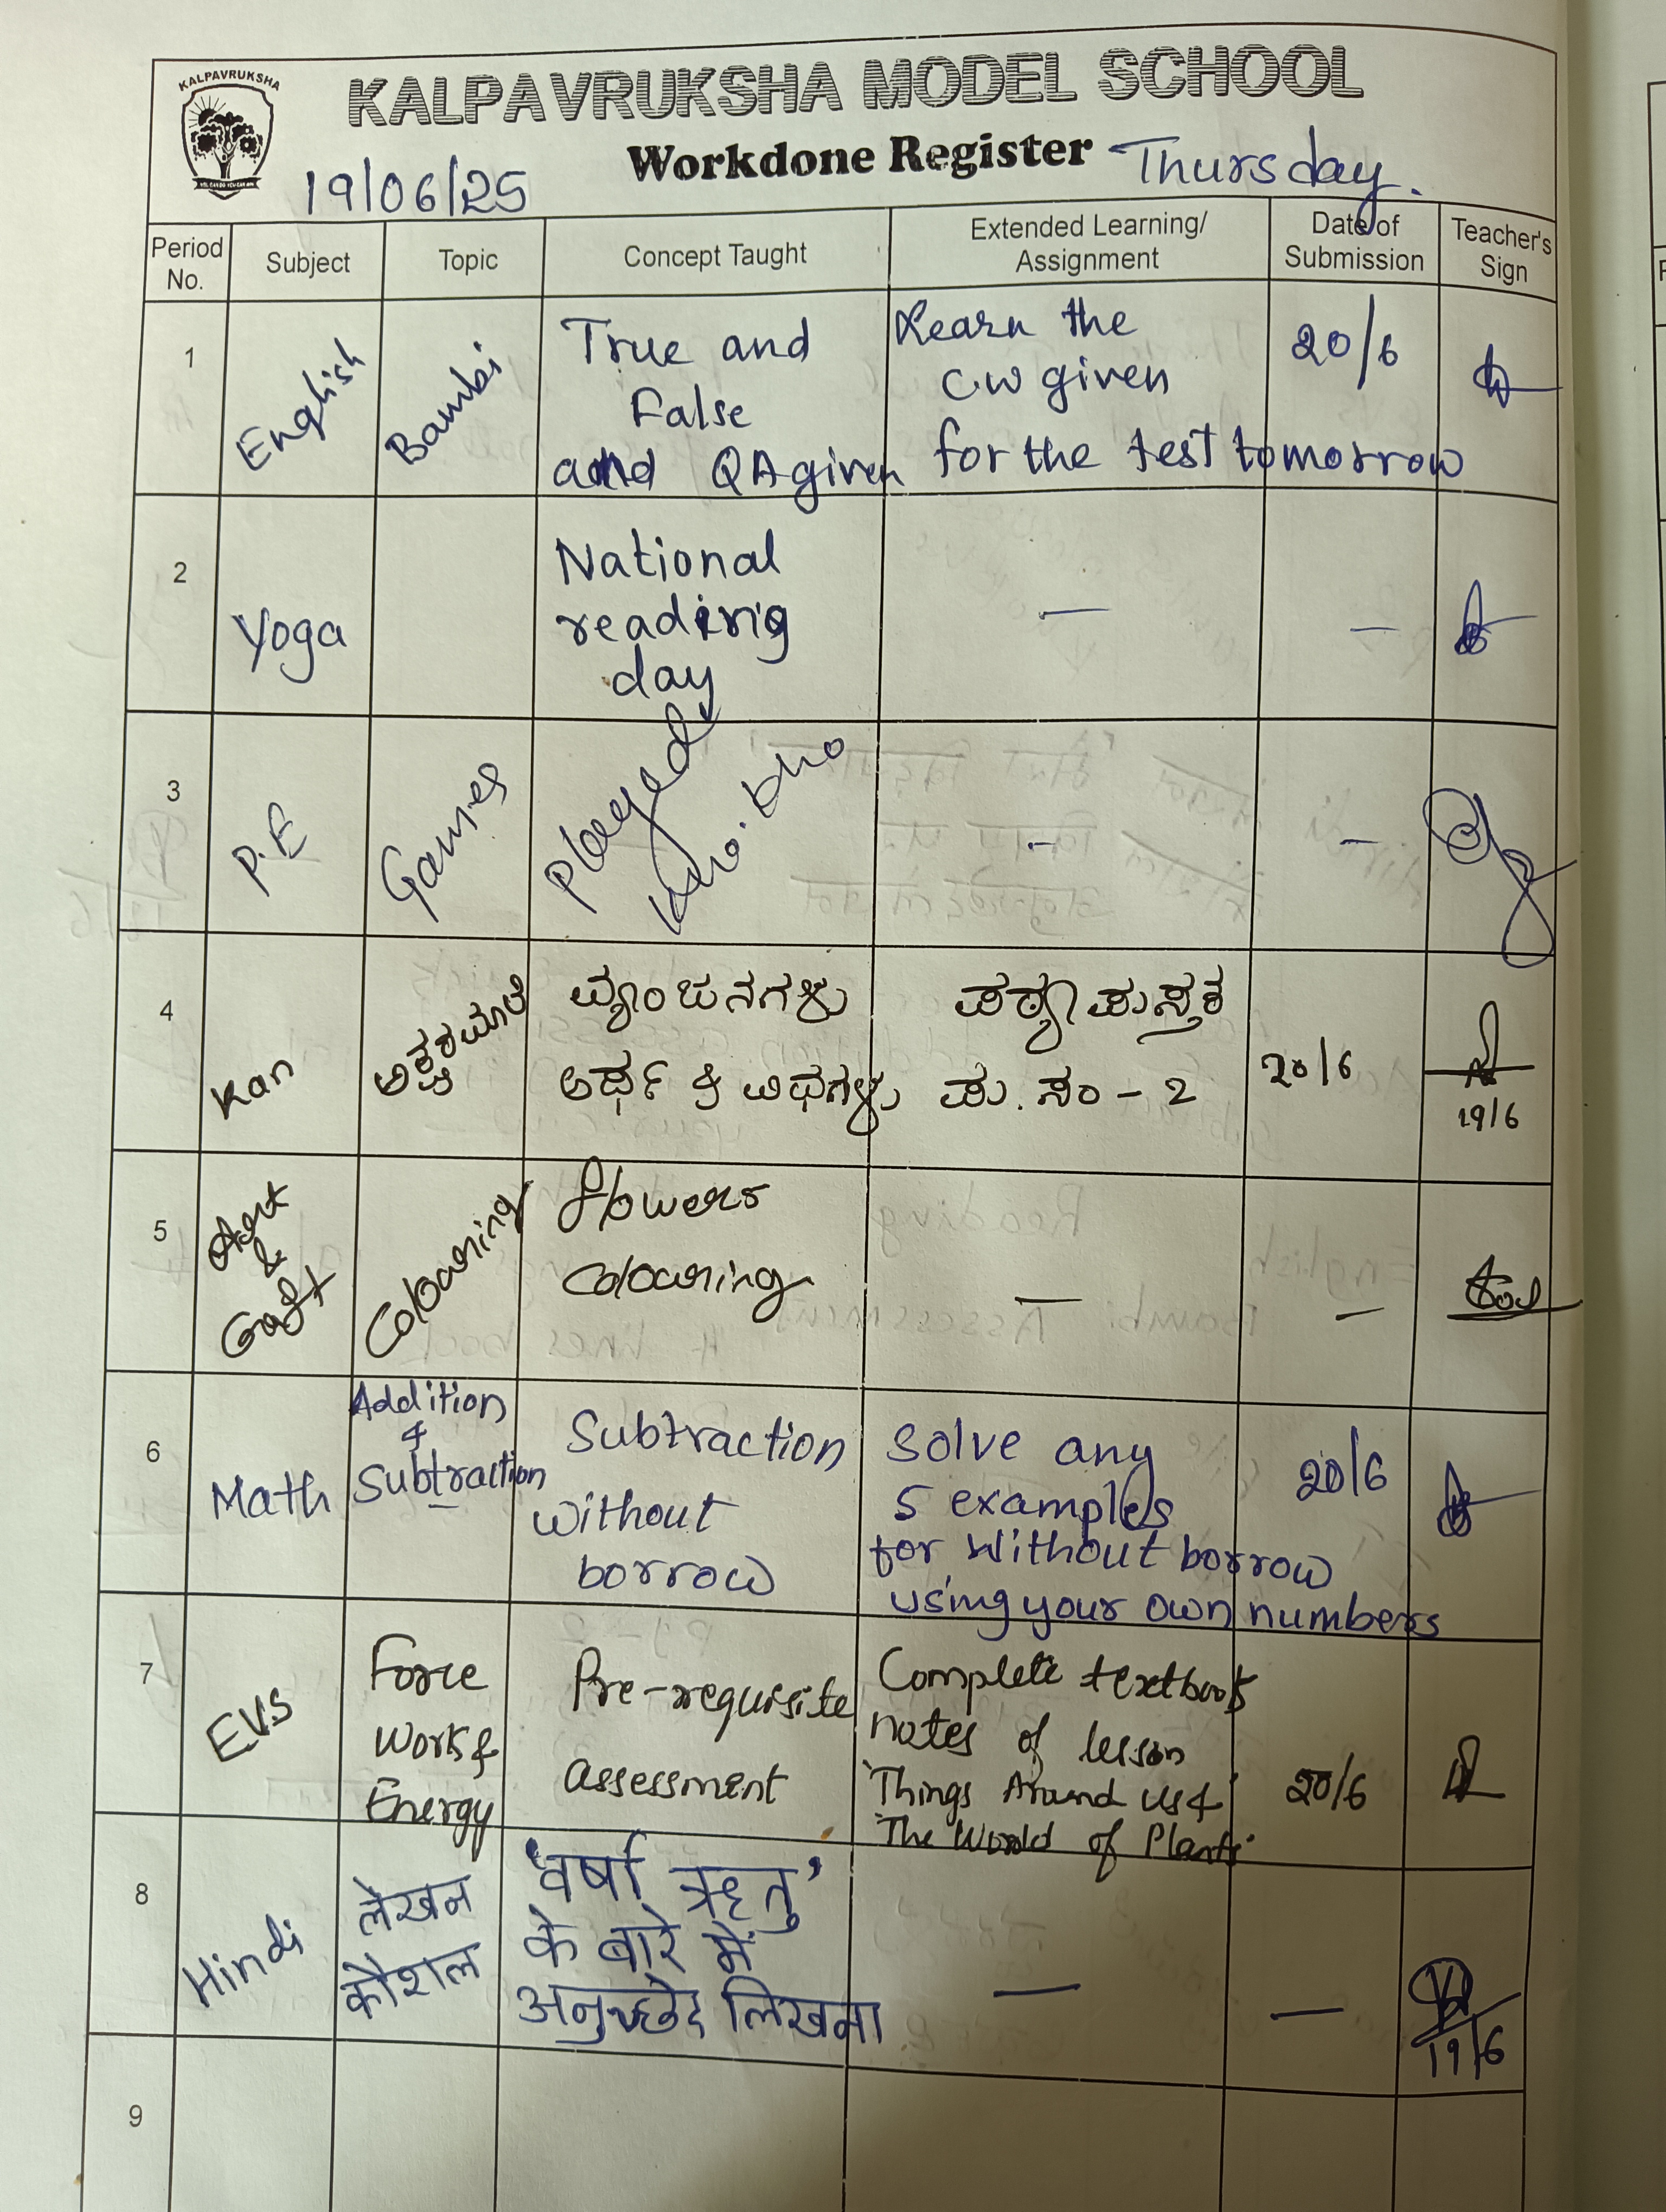 KALPAVRUKSHA
KALPAVRUKSHA MODEL SCHOOL
Workdone Register Thursday.
19/06/25
Period No.
Subject
Topic
Concept Taught
Extended Learning/ Assignment
Date of Submission
Teacher's Sign
1
English
Bambi
True and
False
and QA given
Learn the
cw given
for the test tomorrow
20/6
2
Yoga
National
reading
day
—
—
3
P.E
Games
Played
kho-kho
-
-
4
Kan
ಅಕ್ಷರಮಾಲೆ
ವ್ಯಂಜನಗಳು
ಅರ್ಥ & ವಿಧಗಳು
ಪಠ್ಯಪುಸ್ತಕ
ಪು. ಸಂ - 2
20/6
19/6
5
Art
&
Craft
Colouring
flowers
colouring
—
—
6
Math
Addition
&
Subtraction
Subtraction
without
borrow
Solve any
5 examples
for without borrow
using your own numbers
20/6
7
EVS
Force
Work &
Energy
Pre-requisite
assessment
Complete textbook
notes of lesson
'Things Around us &
'The World of Plants'
20/6
8
Hindi
लेखन
कौशल
'वर्षा ऋतु'
के बारे में
अनुच्छेद लिखना
—
—
19/6
9